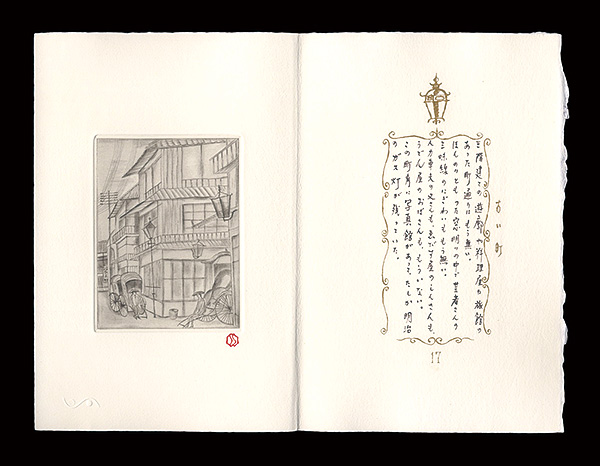 古い町
三階建ての遊廓や料理屋や旅館の
あった町通りはもう無い。
ほんのりともった窓明りの中で芸者さんの
三味線のにぎわいももう無い。
人力車夫の さんも、 屋の さんも、
うどん屋のおばさんも、もういない。
この町角に写真館があって、たしか明治
のガス灯が残っていた。
17